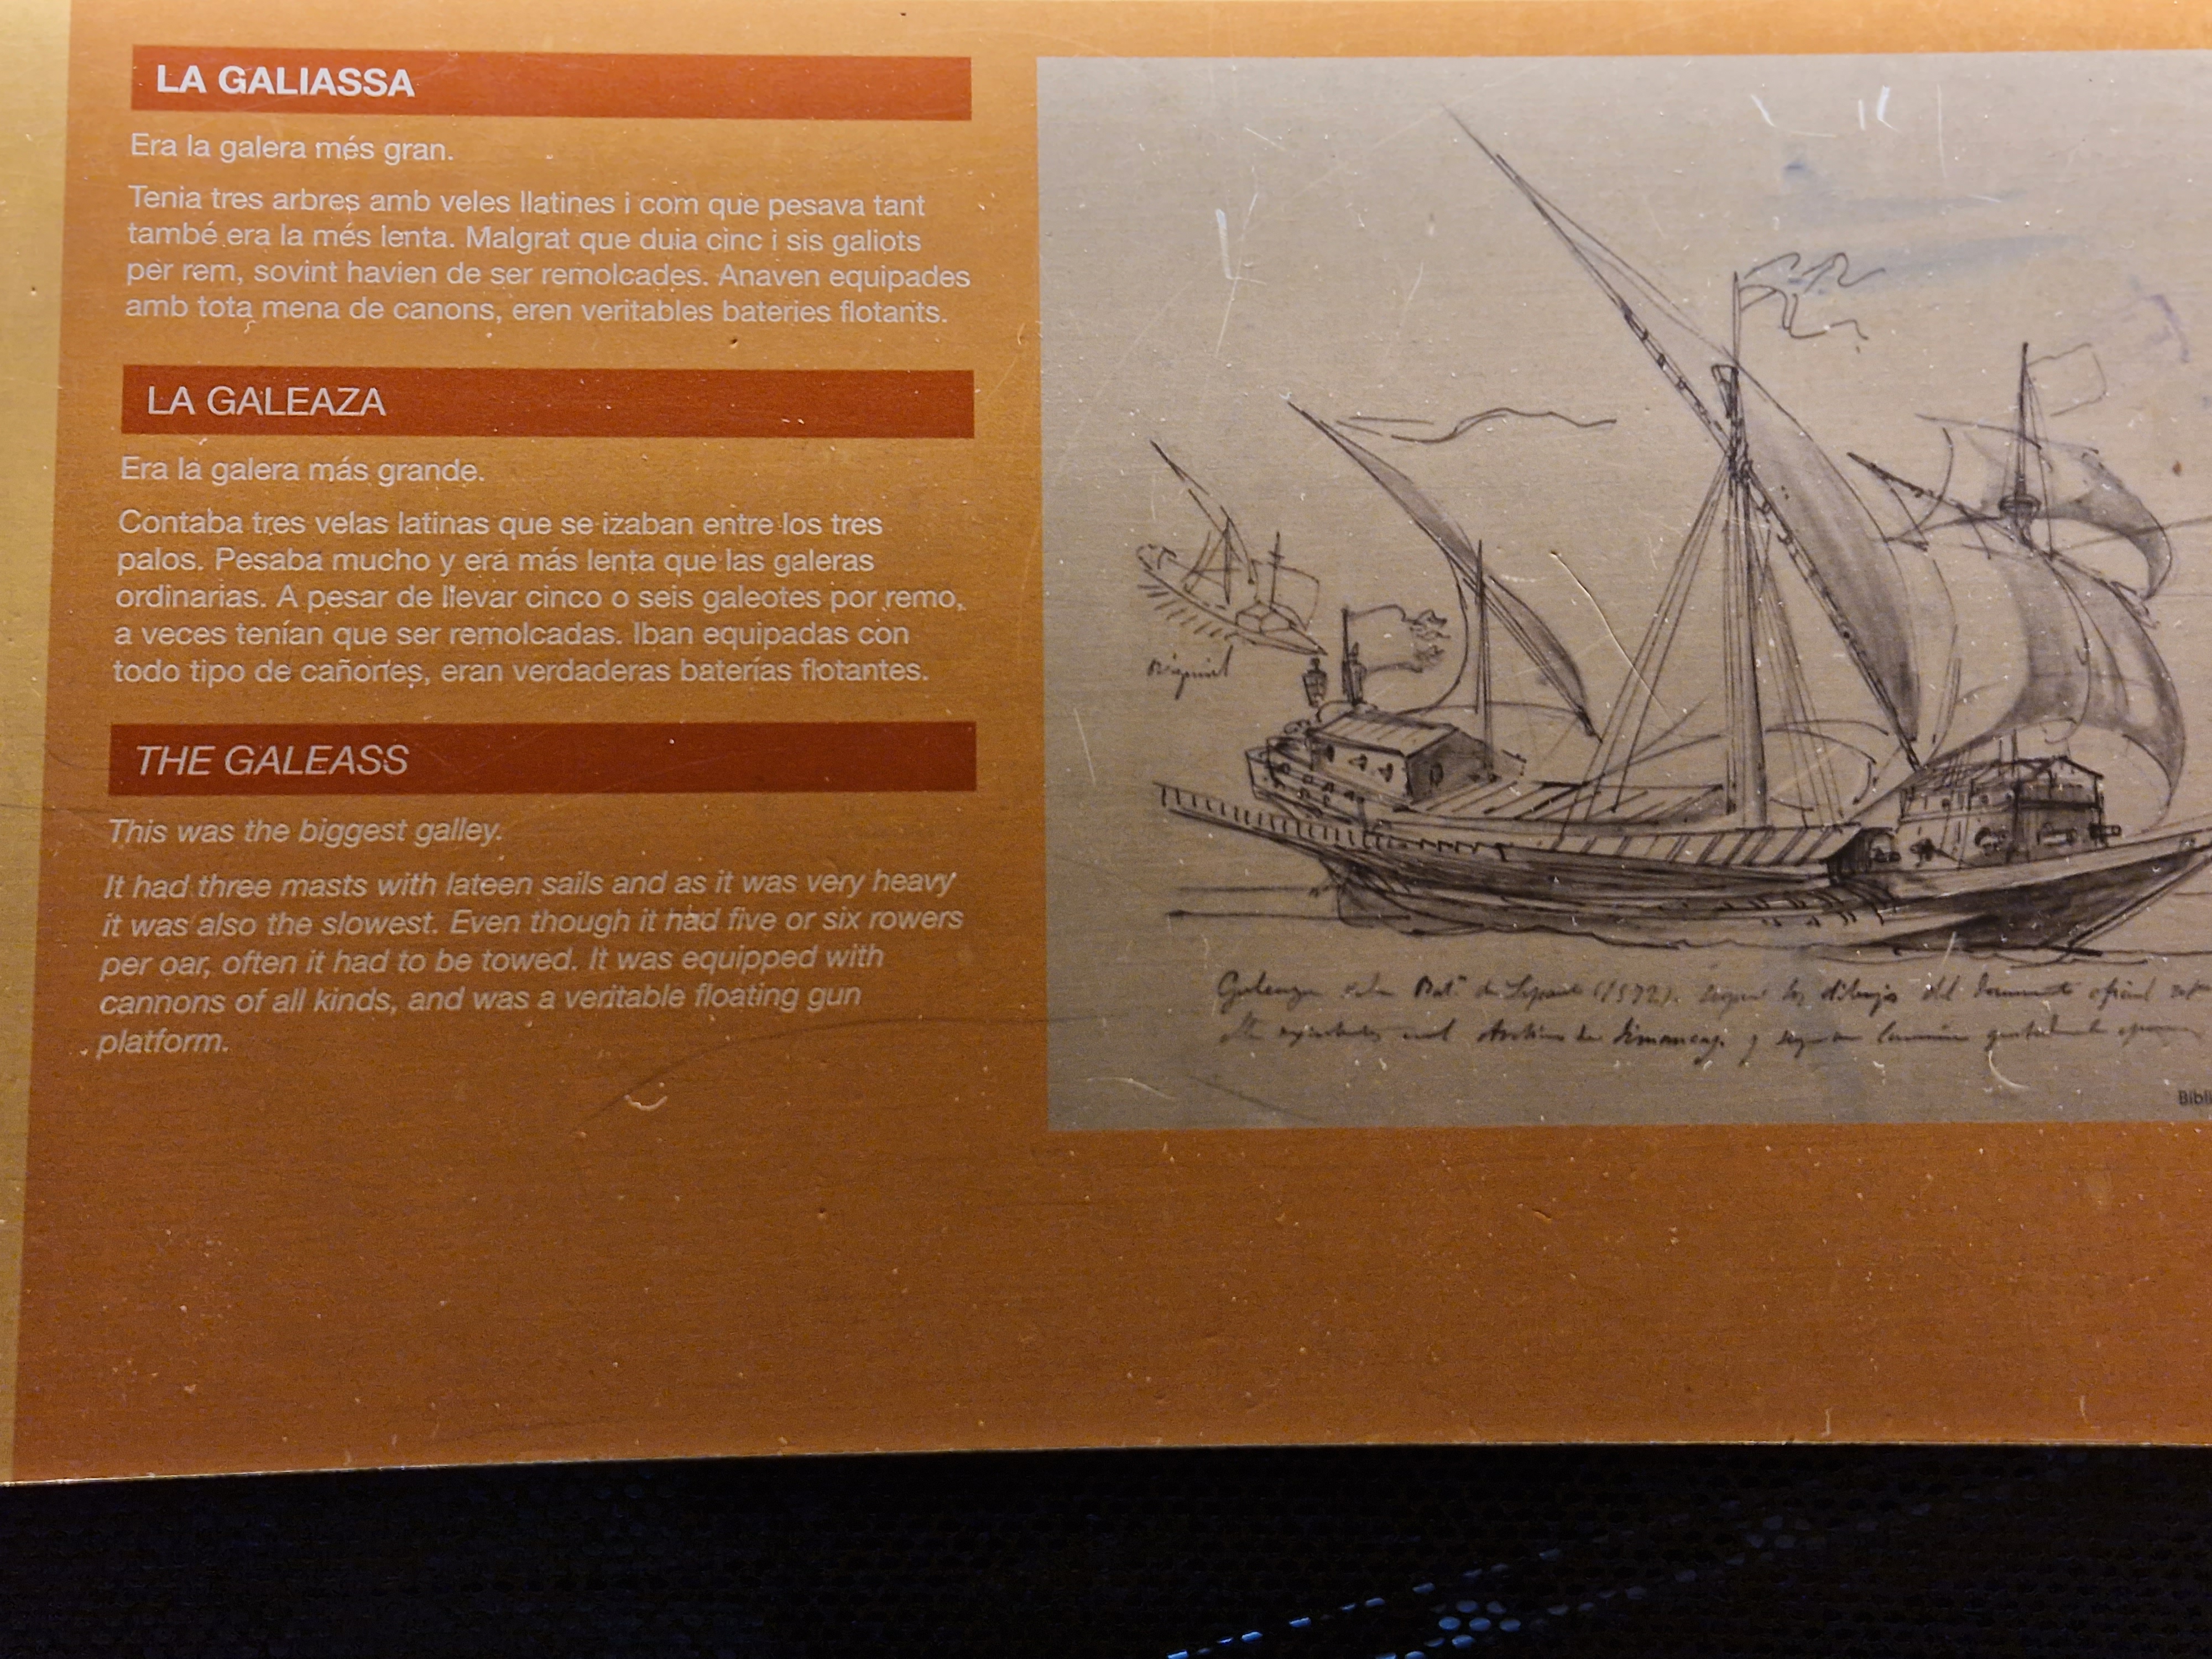 LA GALIASSA
Era la galera més gran.
Tenia tres arbres amb veles llatines i com que pesava tant
també era la més lenta. Malgrat que duia cinc i sis galiots
per rem, sovint havien de ser remolcades. Anaven equipades
amb tota mena de canons, eren veritables bateries flotants.
LA GALEAZA
Era la galera más grande.
Contaba tres velas latinas que se izaban entre los tres
palos. Pesaba mucho y era más lenta que las galeras
ordinarias. A pesar de llevar cinco o seis galeotes por remo,
a veces tenían que ser remolcadas. Iban equipadas con
todo tipo de cañones, eran verdaderas baterías flotantes.
THE GALEASS
This was the biggest galley.
It had three masts with lateen sails and as it was very heavy
it was also the slowest. Even though it had five or six rowers
per oar, often it had to be towed. It was equipped with
cannons of all kinds, and was a veritable floating gun
platform.
Galeaza de Lepanto (1572). los dibujos del documento oficial
Archivo de Simancas y
Bibli